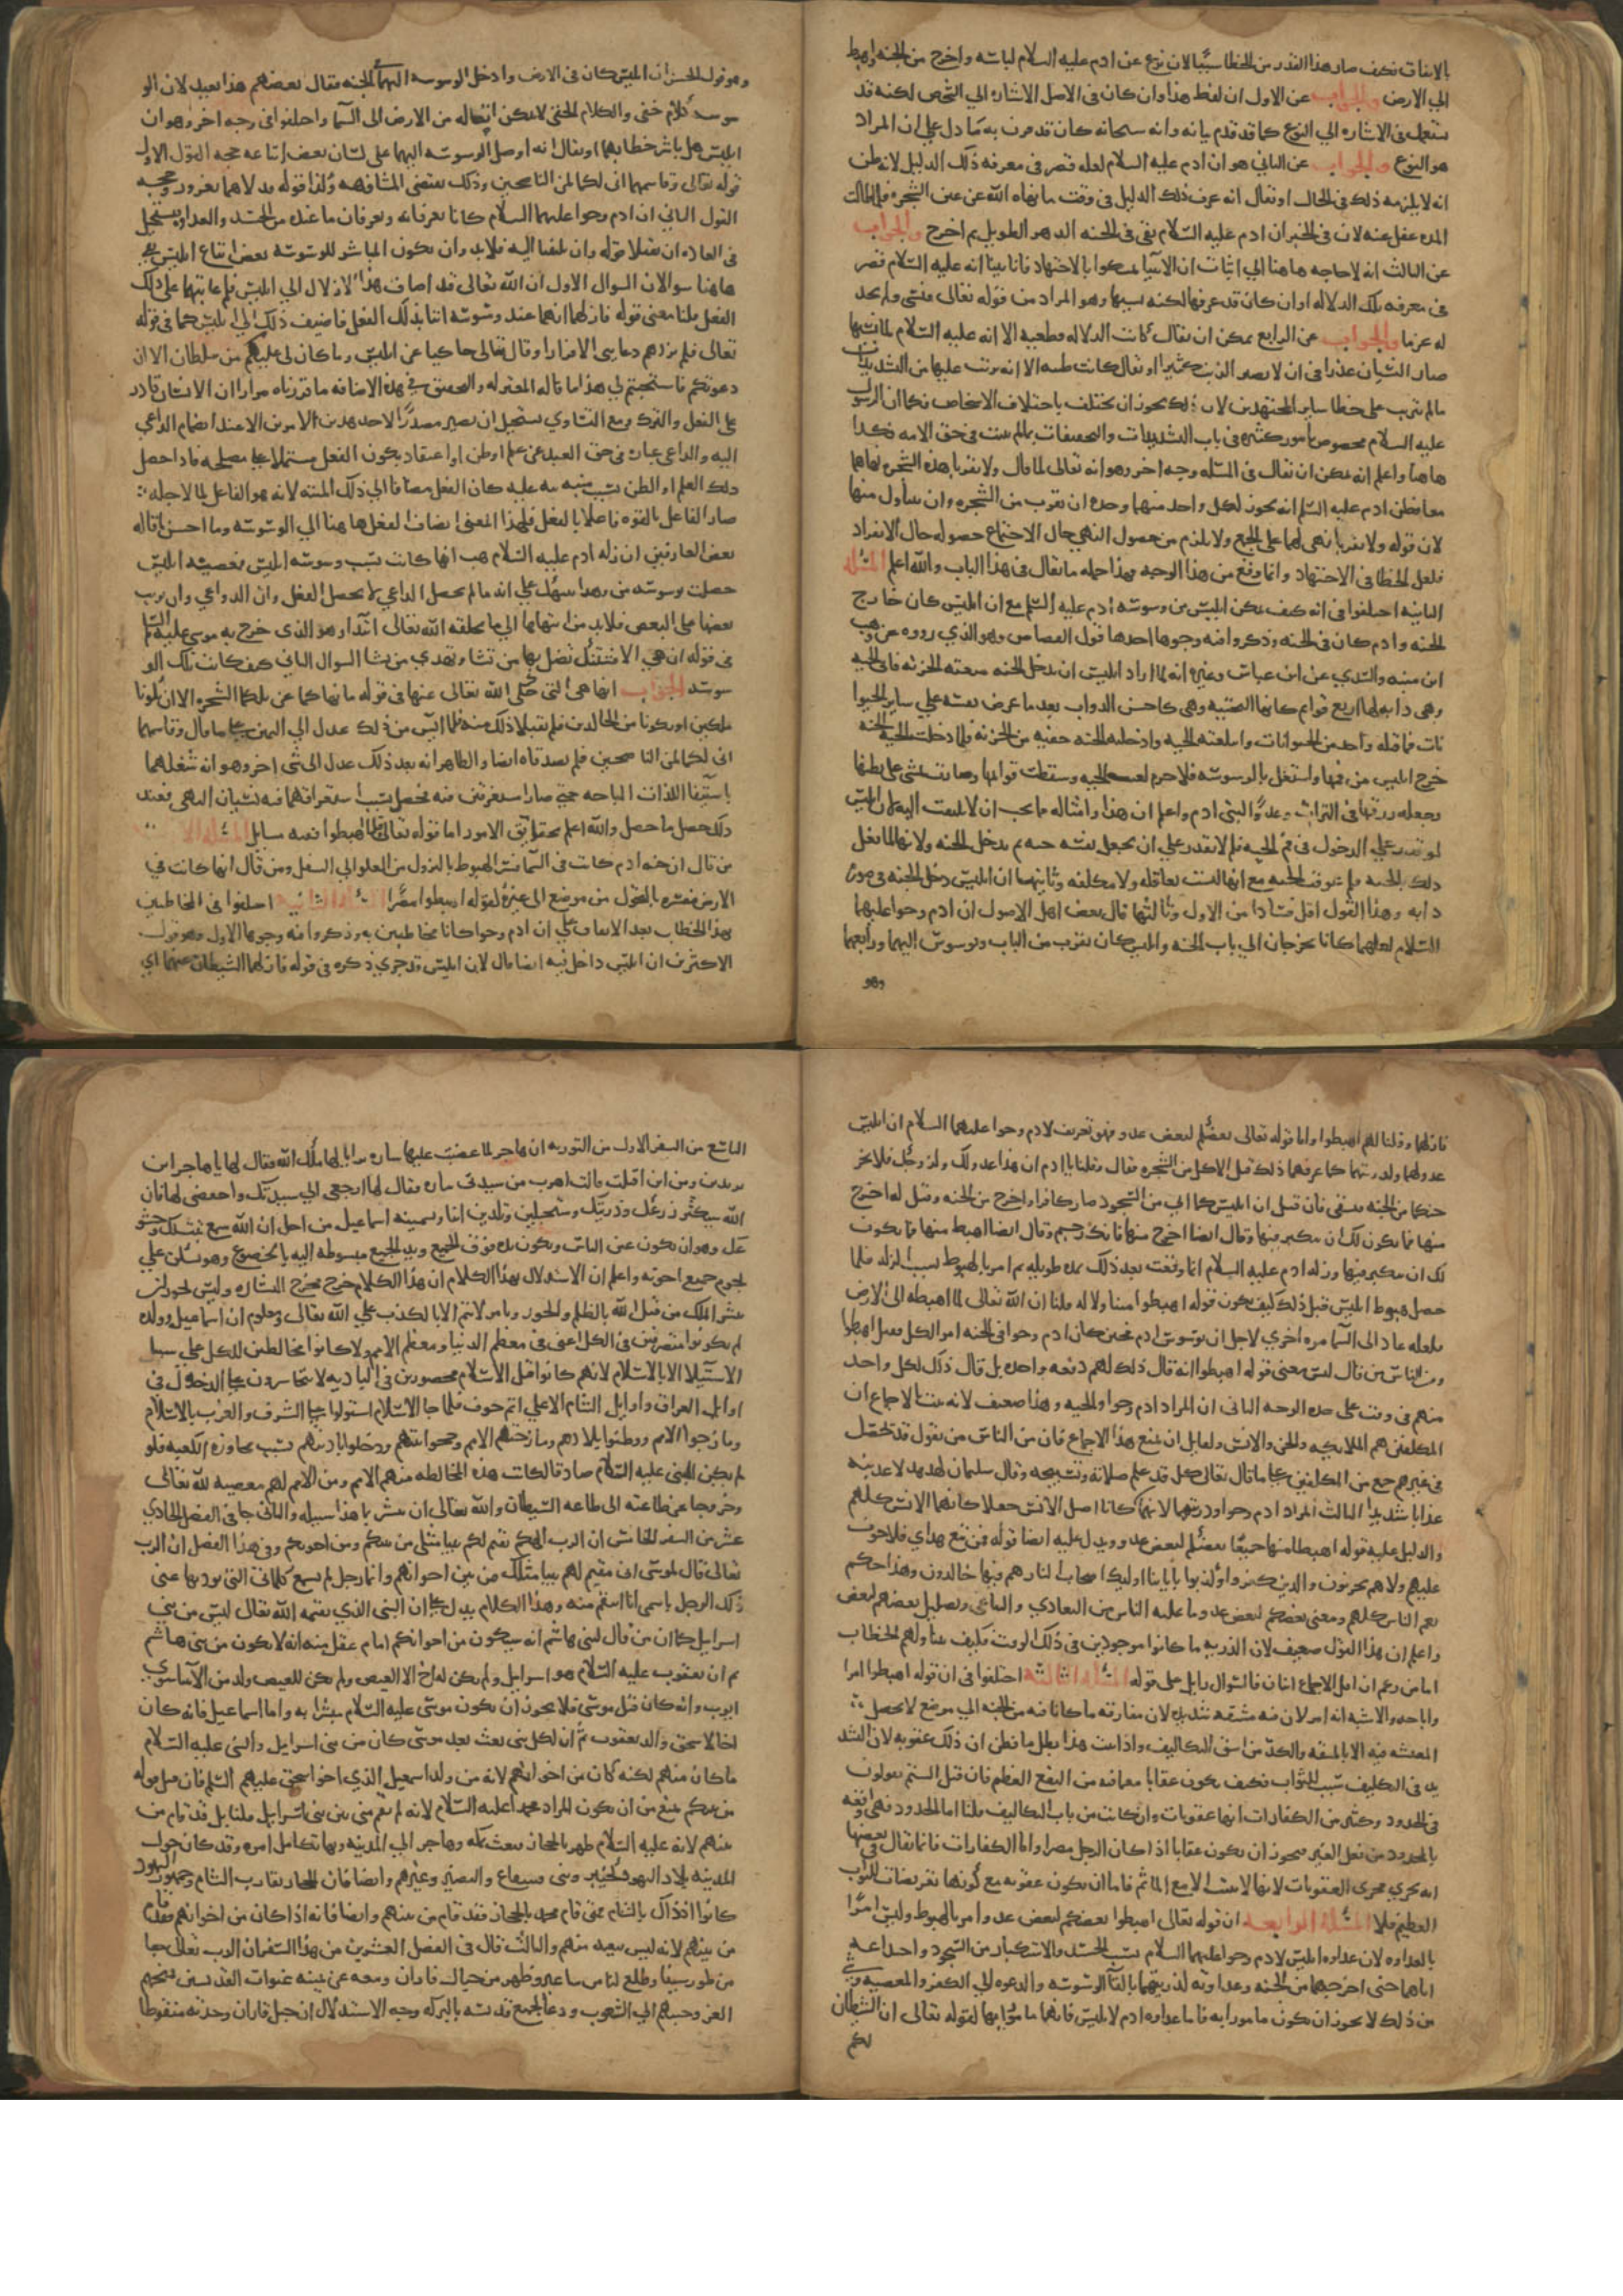 بالاتفاق فكيف صار هذا القدر من الخطا سببا لان نزع عن ادم عليه السلام لباسه واخرج من الجنه واهبط
الي الارض والجواب عن الاول ان لفظ هذا وان كان في الاصل الاشاره الي الشخص لكنه قد
يستعمل في الاشاره الي النوع كما قد تقدم بيانه وانه سبحانه كان قد قرن به ما دل علي ان المراد
هو النوع والجواب عن الثاني هو ان ادم عليه السلام لعله قصر في معرفه ذلك الدليل لانه ظن
انه لا يلزمه ذلك في الحال او نقال انه عرف ذلك الدليل في وقت ما نهاه الله عن عين الشجره فلما طالت
المده غفل عنه لان في الخبر ان ادم عليه السلام بقي في الجنه الدهر الطويل ثم اخرج والجواب
عن الثالث انه لا حاجه هاهنا الي اثبات ان الانبيا تمسكوا بالاجتهاد فانا بينا انه عليه السلام قصر
في معرفه تلك الدلاله او ان كان قد عرفها لكنه نسيها وهو المراد من قوله تعالى فنسي ولم نجد
له عزما والجواب عن الرابع يمكن ان نقال كانت الدلاله قطعيه الا انه عليه السلام لما نسيها
صار النسيان عذرا في ان لا يصير الذنب كبيرا او نقال كانت ظنيه الا انه ترتب عليها من التشديدات
مالم يترتب على خطا ساير المجتهدين لان ذلك يجوز ان يختلف باختلاف الاشخاص فكما ان الرسول
عليه السلام مخصوص بامور كثيره في باب التشديدات والتخفيفات بمالم يثبت في حق الامه فكذا
هاهنا واعلم انه يمكن ان نقال في المسله وجه اخر وهو انه تعالى لما قال ولا تقربا هذه الشجره نهاهما
معا فظن ادم عليه السلم انه يجوز لكل واحد منهما وحده ان يقرب من الشجره وان يتناول منها
لان قوله ولا تقربا نهي لهما على الجمع ولا يلزم من حصول النهي حال الاجتماع حصوله حال الانفراد
فلعل الخطا في الاجتهاد وانما وقع من هذا الوجه فهذا جمله ما نقال في هذا الباب والله اعلم المسله
الثانيه اختلفوا في انه كيف تمكن ابليس من وسوسه ادم عليه السلم مع ان ابليس كان خارج
الجنه وادم كان في الجنه وذكروا فيه وجوها احدها قول القصاص وهو الذي رووه عن وهب
ابن منبه والسدي عن ابن عباس وغيره انه لما اراد ابليس ان يدخل الجنه منعته الخزنه فاتي الحيه
وهي دابه لها اربع قوايم كانها البختيه وهي كاحسن الدواب بعد ما عرض نفسه علي ساير الحيوا
نات فما قبله واحد من الحيوانات وابتلعته الحيه وادخلته الجنه خفيه من الخزنه فلما دخلت الحيه الجنه
خرج ابليس من فمها واشتغل بالوسوسه فلا جرم لعنت الحيه وسقطت قوايمها وصارت تمشي على بطنها
وجعل رزقها في التراب وعدوا لبني ادم واعلم ان هذا وامثاله مما يجب ان لا يلتفت اليه لان ابليس
لو قدر علي الدخول في فم الحيه فلم لا يقدر علي ان يجعل نفسه حيه ثم يدخل الجنه ولانه لما فعل
ذلك بالحيه فلم عوقبت الحيه مع انها ليست بعاقله ولا مكلفه وثانيها ان ابليس دخل الجنه في صوره
دابه وهذا القول اقل فسادا من الاول وثالثها قال بعض اهل الاصول ان ادم وحوا عليهما
السلام لعلهما كانا يخرجان الي باب الجنه وابليس كان بقرب من الباب ويوسوس اليهما ورابعها
وهو
وهو قول الحسن ان ابليس كان في الارض وادخل الوسوسه اليهما في الجنه فقال بعضهم هذا بعيد لان الو
سوسه كلام خفي والكلام الخفي لا يمكن ايصاله من الارض الى السما واختلفوا في وجه اخر وهو ان
ابليس هل باشر خطابهما او نقال انه اوصل الوسوسه اليهما على لسان بعض اتباعه حجه القول الاول
قوله تعالى وقاسمهما اني لكما لمن الناصحين وذلك يقتضي المشافهه وكذا قوله فدلاهما بغرور وحجه
القول الثاني ان ادم وحوا عليهما السلام كانا يعرفانه ويعرفان ما عنده من الحسد والعداوه فيستحيل
في العاده ان يقبلا قوله وان يلتفتا اليه فلابد وان يكون المباشر للوسوسه بعض اتباع ابليس بقي
هاهنا سوالان السوال الاول ان الله تعالى قد اضاف هذا الازلال الي ابليس فلم عاتبهما على ذلك
الفعل قلنا معنى قوله فازلهما انهما عند وسوسته اتيا بذلك الفعل فاضيف ذلك الي ابليس كما في قوله
تعالى فلم يزدهم دعايي الا فرارا وقال تعالى حاكيا عن ابليس وما كان لي عليكم من سلطان الا ان
دعوتكم فاستجبتم لي هذا ما قاله المعتزله والتحقيق في هذه الاضافه ما قررناه مرارا ان الانسان قادر
على الفعل والترك ومع التساوي يستحيل ان يصير مصدرا لاحد هذين الامرين الا عند انضمام الداعي
اليه والداعي عباره في حق العبد عن علم او ظن او اعتقاد بكون الفعل مشتملا على مصلحه فاذا حصل
ذلك العلم او الظن بسبب منبه نبه عليه كان الفعل مضافا الي ذلك المنبه لانه هو الفاعل لما لاجله
صار الفاعل بالقوه فاعلا بالفعل فلهذا المعنى انضاف الفعل هاهنا الي الوسوسه وما احسن ما قاله
بعض العارفين ان زله ادم عليه السلام هب انها كانت بسبب وسوسه ابليس فمعصيه ابليس
حصلت بوسوسه من وهذا ينبهك على انه مالم يحصل الداعي لا يحصل الفعل وان الدواعي وان ترتب
بعضها على البعض فلابد من انتهائها الي ما يخلقه الله تعالى ابتدا وهو الذي خرج به موسي عليه السلم
في قوله ان هي الا فتنتك تضل بها من تشا وتهدي من تشا السوال الثاني كيف كانت تلك الو
سوسه الجواب انها هي التي حكى الله تعالى عنها في قوله ما نهاكما عن تلكما الشجره الا ان تكونا
ملكين او تكونا من الخالدين فلم يقبلا ذلك منه فلما ايس من ذلك عدل الي اليمين على ما قال وقاسمهما
اني لكما لمن الناصحين فلم يصدقاه ايضا والظاهر انه بعد ذلك عدل الى شي اخر وهو انه شغلهما
باستيفا اللذات المباحه حتى صارا مستغرقين فيه فحصل بسبب استغراقهما فيه نسيان النهي فعند
ذلك حصل ما حصل والله اعلم بحقايق الامور اما قوله تعالى قلنا اهبطوا ففيه مسايل المسله الاولي
من قال ان جنه ادم كانت في السما فسر الهبوط بالنزول من العلو الي السفل ومن قال انها كانت في
الارض فسره بالتحول من موضع الى غيره لقوله اهبطوا مصرا المسله الثانيه اختلفوا في المخاطبين
بهذا الخطاب بعد الاتفاق على ان ادم وحوا كانا مخاطبين به وذكروا فيه وجوها الاول وهو قول
الاكثرين ان ابليس داخل فيه ايضا قال لان ابليس قد جري ذكره في قوله فازلهما الشيطان عنها اي
فازلهما وقلنا لهم اهبطوا واما قوله تعالى بعضكم لبعض عدو فهو تعريف لادم وحوا عليهما السلام ان ابليس
عدو لهما ولذريتهما كما عرفهما ذلك قبل الاكل من الشجره فقال وقلنا يا ادم ان هذا عدو لك ولزوجك فلا يخر
جنكما من الجنه فتشقى فان قيل ان ابليس كما ابي من السجود صار كافرا واخرج من الجنه وقيل له اخرج
منها فما يكون لك ان تتكبر فيها وقال ايضا اخرج منها فانك رجيم وقال ايضا اهبط منها فما يكون
لك ان تتكبر فيها وزله ادم عليه السلام انما وقعت بعد ذلك بمده طويله ثم امر بالهبوط بسبب الزله فلما
حصل هبوط ابليس قبل ذلك كيف يكون قوله اهبطوا متناولا له قلنا ان الله تعالى لما اهبطه الى الارض
فلعله عاد الى السما مره اخري لاجل ان يوسوس ادم فحين كان ادم وحوا في الجنه امر الكل فقيل اهبطوا
ومن الناس من قال ليس معنى قوله اهبطوا انه قال ذلك لهم دفعه واحده بل قال ذلك لكل واحد
منهم في وقت على حده الوجه الثاني ان المراد ادم وحوا والحيه وهذا ضعيف لانه ثبت بالاجماع ان
المكلفين هم الملايكه والجن والانس ولقايل ان يمنع هذا الاجماع فان من الناس من يقول قد يحصل
في غيرهم جمع من المكلفين على ما قال تعالى كل قد علم صلاته وتسبيحه وقال سليمان للهدهد لاعذبنه
عذابا شديدا الثالث المراد ادم وحوا وذريتهما لانهما كانا اصل الانس جعلا كانهما الانس كلهم
والدليل عليه قوله اهبطا منها جميعا بعضكم لبعض عدو ويدل عليه ايضا قوله فمن تبع هداي فلا خوف
عليهم ولا هم يحزنون والذين كفروا وكذبوا باياتنا اوليك اصحاب النار هم فيها خالدون وهذا حكم
يعم الناس كلهم ومعنى بعضكم لبعض عدو ما عليه الناس من التعادي والتباغي وتضليل بعضهم لبعض
واعلم ان هذا القول ضعيف لان الذريه ما كانوا موجودين في ذلك الوقت فكيف يتناولهم الخطاب
اما من زعم ان اقل الاجماع اثنان فالسوال زايل على قوله المسله الثالثه اختلفوا في ان قوله اهبطوا امرا
واباحه والاشبه انه امر لان فيه مشقه شديده لان مفارقه ما كانا فيه من الجنه الي موضع لا يحصل
المعيشه فيه الا بالمشقه والكد من اشق التكاليف واذا ثبت هذا بطل ما يظن ان ذلك عقوبه لان التشد
يد في التكليف سبب للثواب فكيف يكون عقابا مع ما فيه من النفع العظيم فان قيل الستم تقولون
في الحدود وكثير من الكفارات انها عقوبات وان كانت من باب التكاليف قلنا اما الحدود فهي واقعه
بالمحدود من فعل الغير فيجوز ان يكون عقابا اذا كان الرجل مصرا واما الكفارات فانما نقال في بعضها
انه يجري مجرى العقوبات لانها لا تثبت الا مع الماثم فاما ان يكون عقوبه مع كونها تعريضات للثواب
العظيم فلا المسله الرابعه ان قوله تعالى اهبطوا بعضكم لبعض عدو امر بالهبوط وليس امرا
بالعداوه لان عداوه ابليس لادم وحوا عليهما السلام بسبب الحسد والاستكبار من السجود واخداعه
اياهما حتى اخرجهما من الجنه وعداوته لذريتهما بالقا الوسوسه والدعوه الي الكفر والمعصيه وشي
من ذلك لا يجوز ان يكون مامورا به فاما عداوه ادم لابليس فانها مامور بها لقوله تعالى ان الشيطان
لكم
التاسع من السفر الاول من التوريه ان هاجر لما غضبت عليها ساره ترايا لها ملك الله فقال لها يا هاجر اين
تريدين ومن اين اقبلت قالت اهرب من سيدتي ساره فقال لها ارجعي الي سيدتك واخفضي لها فان
الله سيكثر زرعك وذريتك وستحبلين وتلدين ابنا وتسمينه اسماعيل من اجل ان الله سمع تبتلك وخشو
عك وهو ان يكون عين الناس وتكون يده فوق الجميع ويد الجميع مبسوطه اليه بالخضوع وهو يسكن على
تخوم جميع اخوته واعلم ان الاستدلال بهذا الكلام ان هذا الكلام خرج مخرج البشاره وليس يجوز ان
يبشر الملك من قبل الله بالظلم والجور وبامر لا يتم الا بالكذب على الله تعالى ومعلوم ان اسماعيل وولده
لم يكونوا متصرفين في الكل اعني في معظم الدنيا ومعظم الامم ولا كانوا مخالطين للكل على سبيل
الاستيلا الا بالاسلام لانهم كانوا قبل الاسلام محصورين في الباديه لا يتجاسرون على الدخول في
اوايل العراق واوايل الشام الا على اتم خوف فلما جا الاسلام استولوا على الشرق والغرب بالاسلام
ومازجوا الامم ووطنوا بلادهم ومازجتهم الامم وحجوا بيتهم ودخلوا باديتهم بسبب مجاوره الكعبه فلو
لم يكن النبي عليه السلام صادقا لكانت هذه المخالطه منهم الامم ومن الامم لهم معصيه لله تعالى
وخروجا عن طاعته الى طاعه الشيطان والله تعالى ان يبشر بما هذا سبيله والثاني جا في الفصل الحادي
عشر من السفر الخامس ان الرب الهكم يقيم لكم نبيا مثلي من بينكم ومن اخوتكم وفي هذا الفصل ان الرب
تعالى قال لموسي اني مقيم لهم نبيا مثلك من بين اخوانهم وايما رجل لم يسمع كلماتي التي يوديها عني
ذلك الرجل باسمي انا انتقم منه وهذا الكلام يدل على ان النبي الذي يقيمه الله تعالى ليس من بني
اسرايل كما ان من قال لبني هاشم انه سيكون من اخوانكم امام عقل منه انه لا يكون من بني هاشم
ثم ان يعقوب عليه السلام هو اسرايل ولم يكن له اخ الا العيص ولم يكن للعيص ولد من الانبيا سوي
ايوب وانه كان قبل موسى فلا يجوز ان يكون موسى عليه السلام مبشرا به واما اسماعيل فانه كان
اخا لاسحق والد يعقوب ثم ان كل نبي بعث بعد موسى كان من بني اسرايل والنبي عليه السلام
ما كان منهم لكنه كان من اخوانهم لانه من ولد اسمعيل الذي اخو اسحق عليهم السلم فان قيل قوله
من بينكم يمنع من ان يكون المراد محمدا عليه السلام لانه لم يقم من بين بني اسرايل قلنا بل قد قام من
بينهم لانه عليه السلام ظهر بالحجاز فبعث بمكه وهاجر الي المدينه وبها تكامل امره وقد كان حول
المدينه بلاد اليهود كخيبر وبني قينقاع والنضير وغيرهم وايضا فان الحجاز يقارب الشام وجمهور اليهود
كانوا اذ ذاك بالشام فمتى قام محمد بالحجاز فقد قام من بينهم وايضا فانه اذا كان من اخوانهم فقد قام
من بينهم لانه ليس ببعيد منهم والثالث قال في الفصل العشرين من هذا السفر ان الرب تعالى جا
من طور سينا وطلع لنا من ساعير وظهر من جبال فاران وصفه عن يمينه عنوات القديسين فمنحهم
العز وحببهم الي الشعوب ودعا لجميع قديسيه بالبركه وجه الاستدلال ان جبل فاران